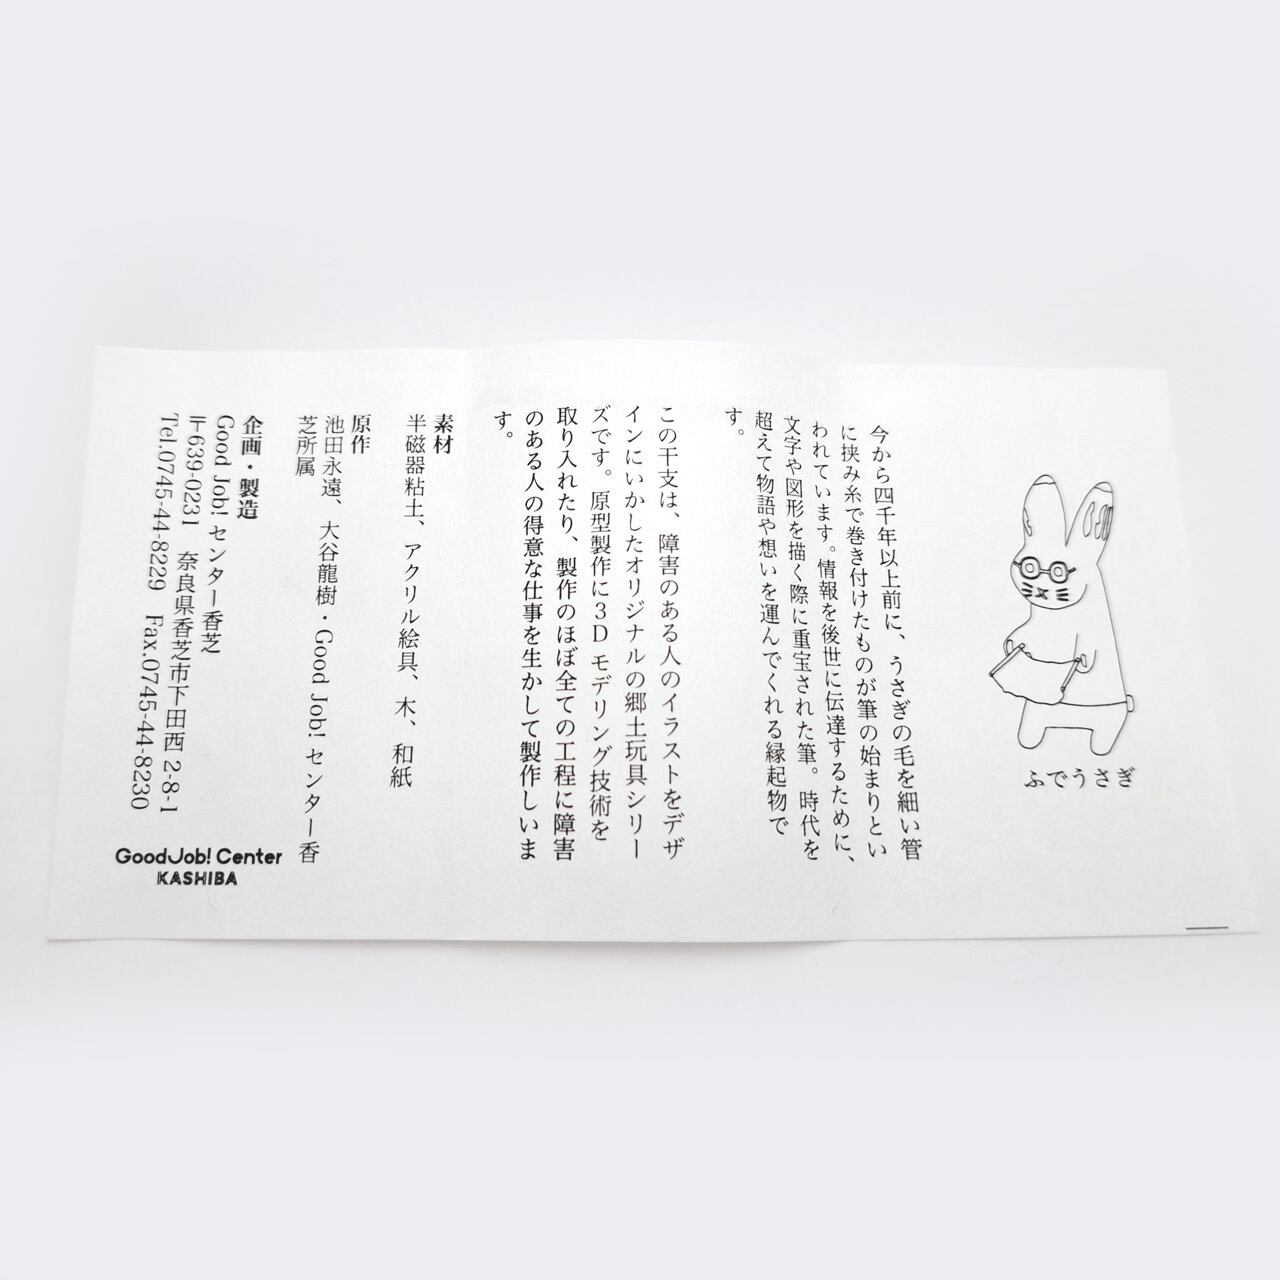 ふでうさぎ
今から四千年以上前に、うさぎの毛を細い管
に挟み糸で巻き付けたものが筆の始まりとい
われています。情報を後世に伝達するために、
文字や図形を描く際に重宝された筆。時代を
超えて物語や想いを運んでくれる縁起物で
す。
この干支は、障害のある人のイラストをデザ
インにいかしたオリジナルの郷土玩具シリー
ズです。原型製作に3Dモデリング技術を
取り入れたり、製作のほぼ全ての工程に障害
のある人の得意な仕事を生かして製作しいま
す。
素材
半磁器粘土、アクリル絵具、木、和紙
原作
池田永遠、大谷龍樹・Good Job! センター香
芝所属
企画・製造
Good Job! センター香芝
〒639-0231 奈良県香芝市下田西 2-8-1
Tel.0745-44-8229 Fax.0745-44-8230
GoodJob! Center
KASHIBA